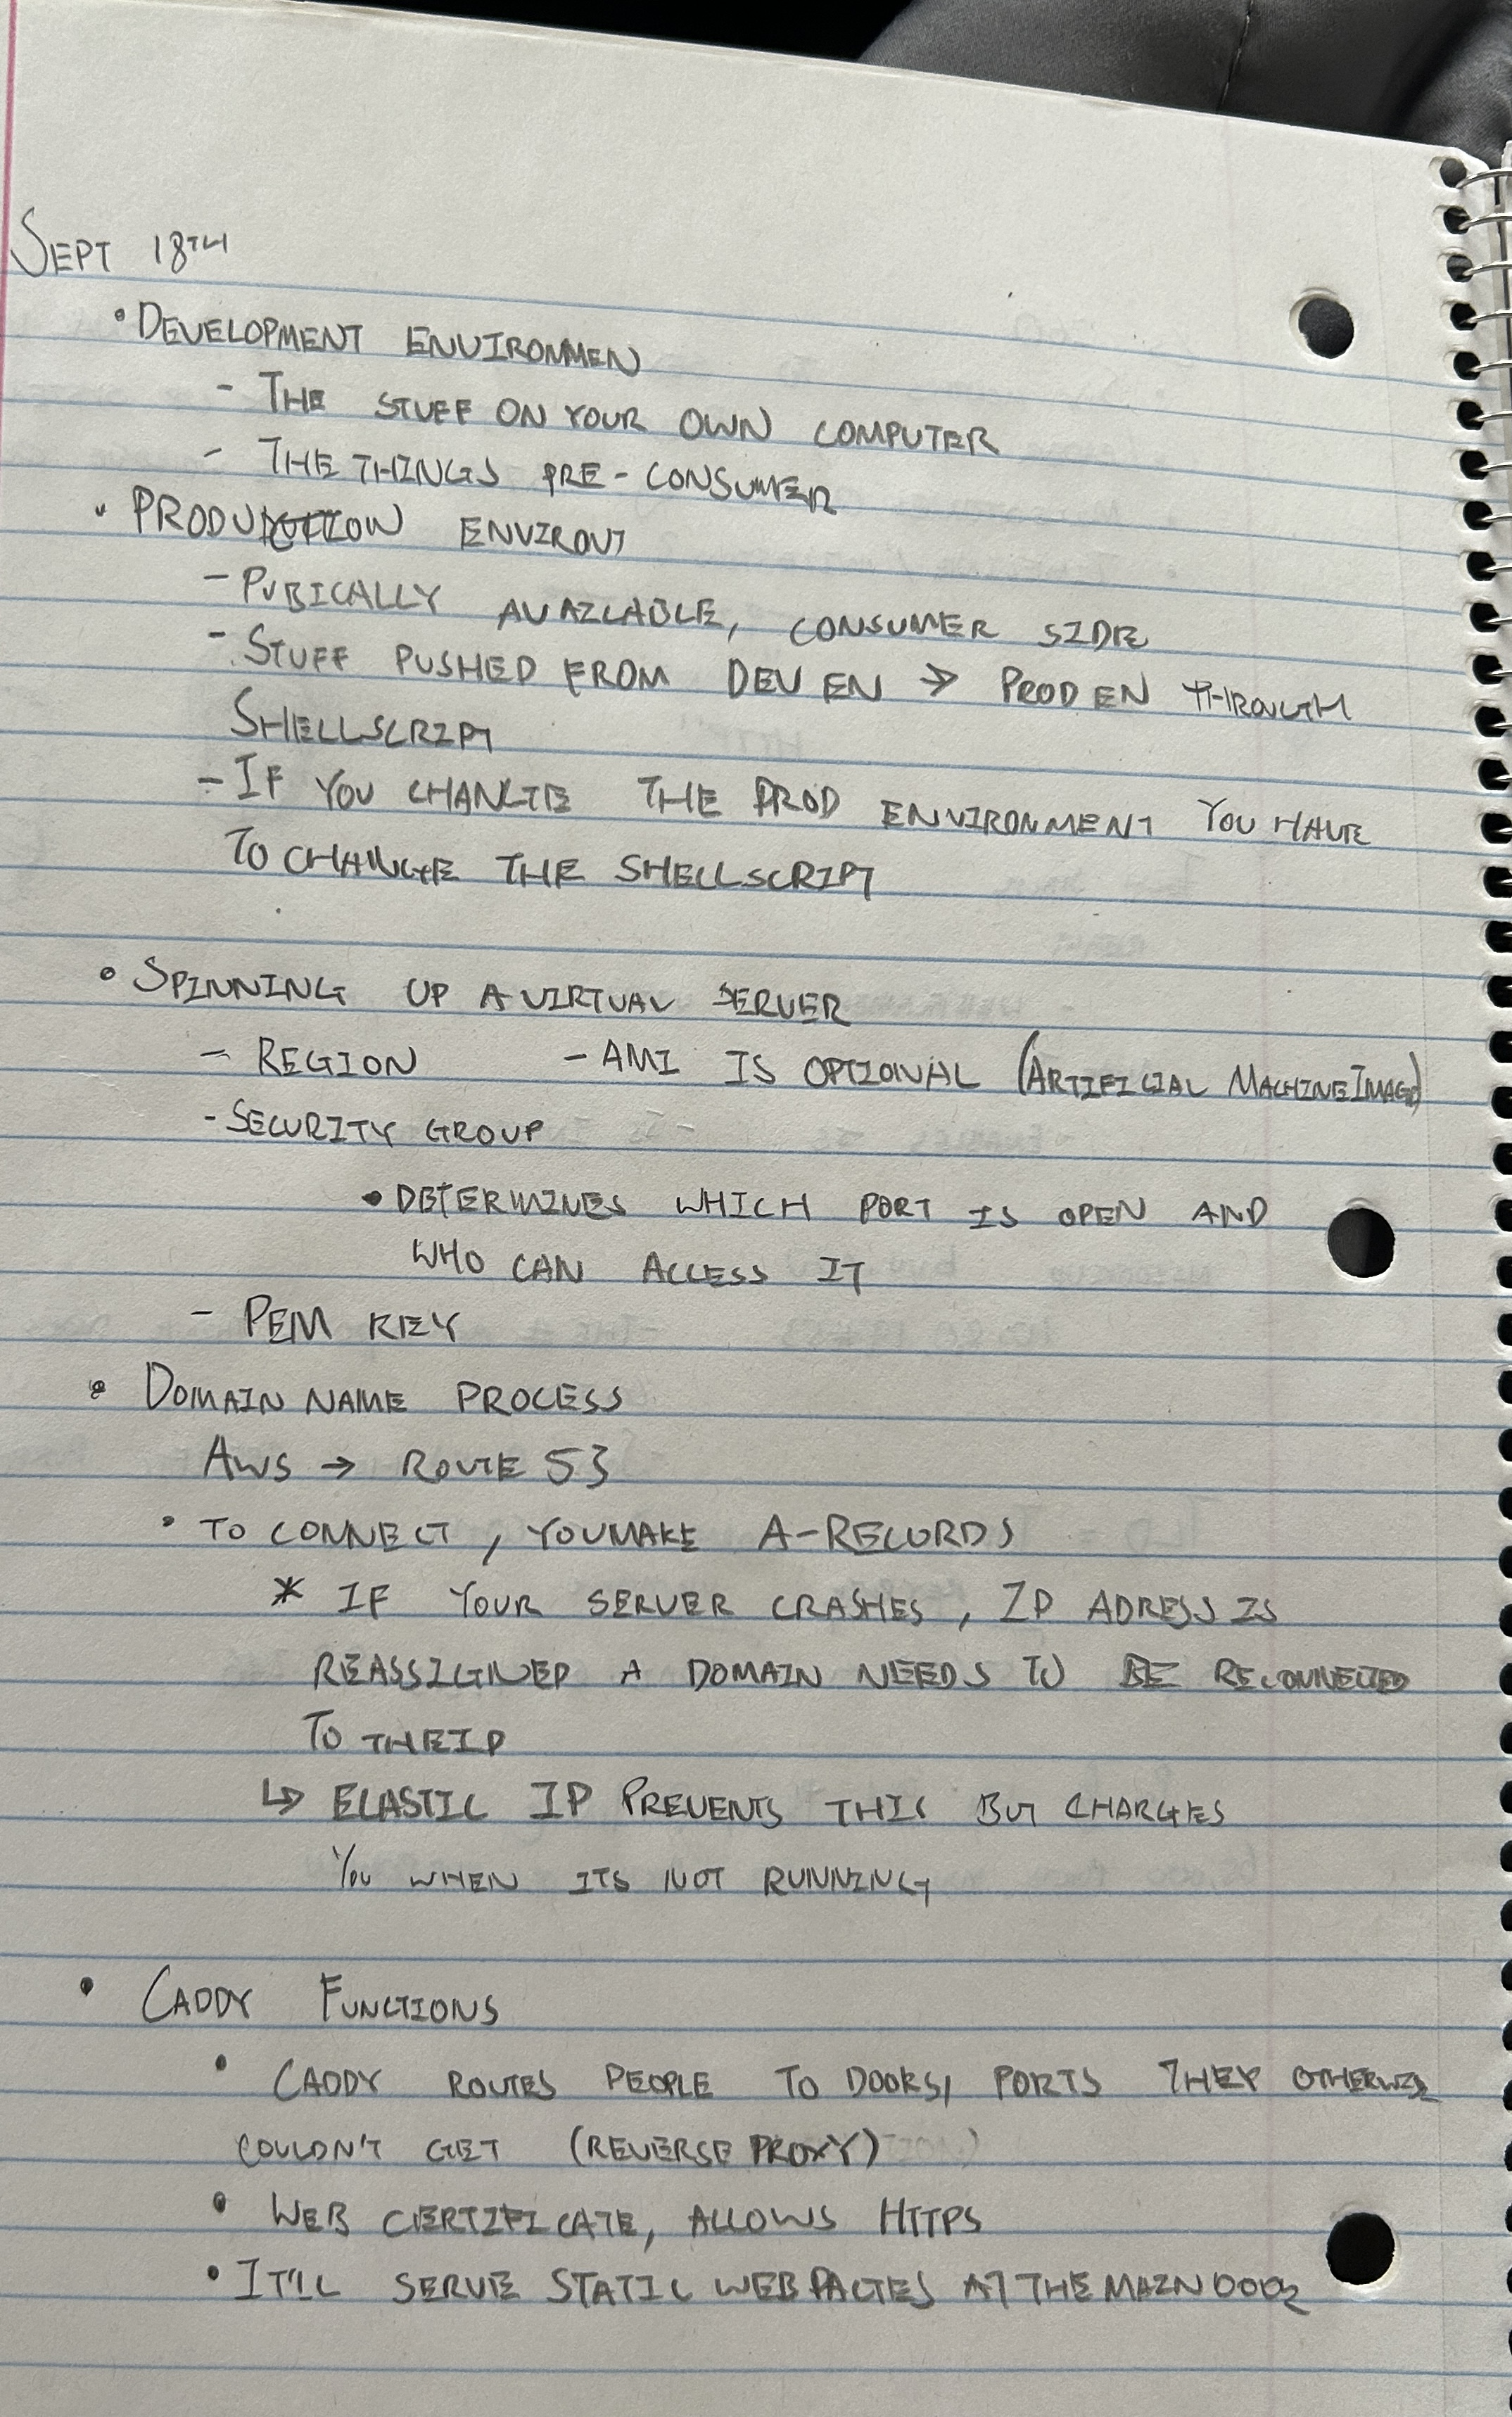 SEPT 18TH
• DEVELOPMENT ENVIRONMEN
- THE STUFF ON YOUR OWN COMPUTER
- THE THINGS PRE-CONSUMER
• PRODUCTION ENVIRONT
- PUBICALLY AVAILABLE, CONSUMER SIDE
- STUFF PUSHED FROM DEV EN → PROD EN THROUGH
SHELLSCRIPT
- IF YOU CHANGE THE PROD ENVIRONMENT YOU HAVE
TO CHANGE THE SHELLSCRIPT
• SPINNING UP A VIRTUAL SERVER
- REGION - AMI IS OPTIONAL (ARTIFICIAL MACHINE IMAGE)
- SECURITY GROUP
• DETERMINES WHICH PORT IS OPEN AND
WHO CAN ACCESS IT
- PEM KEY
• DOMAIN NAME PROCESS
AWS → ROUTE 53
• TO CONNECT, YOU MAKE A-RECORDS
* IF YOUR SERVER CRASHES, IP ADRESS IS
REASSIGNED A DOMAIN NEEDS TO BE RECONNECTED
TO THE IP
↳ ELASTIC IP PREVENTS THIS BUT CHARGES
YOU WHEN ITS NOT RUNNING
• CADDY FUNCTIONS
• CADDY ROUTES PEOPLE TO DOORS, PORTS THEY OTHERWISE
COULDN'T GET (REVERSE PROXY)
• WEB CERTIFICATE, ALLOWS HTTPS
• IT'LL SERVE STATIC WEB PAGES AT THE MAIN DOOR